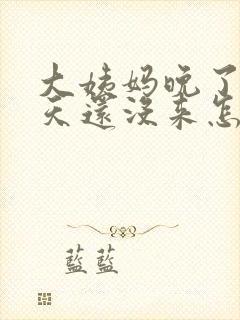 大姨妈晚了
天還没来怎
藍藍